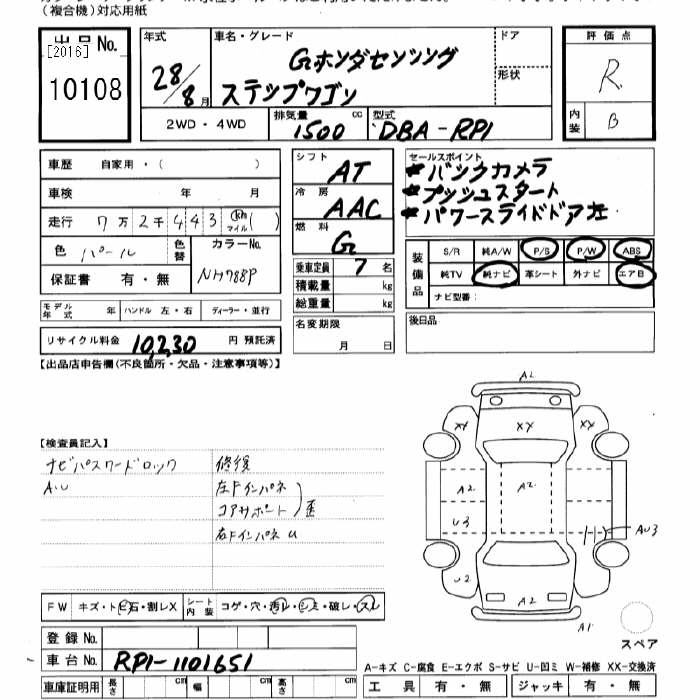 (複合機)対応用紙
出品No.
[2016]
10108
年式
28/8月
車名・グレード
Gホンダセンシング
ステップワゴン
ドア
形状
2WD・4WD
排気量
1500 cc
型式
DBA-RP1
評価点
R
内装
B
車歴 自家用・( )
車検 年 月
走行 7万2千443 km マイル ( )
色 パール
色替
カラーNo.
NH788P
保証書 有・無
モデル年式 年 ハンドル 左・右 ディーラー・並行
リサイクル料金 10,230 円 預託済
シフト AT
冷房 AAC
燃料 G
乗車定員 7 名
積載量 kg
総重量 kg
名変期限
月 日
セールスポイント
バックカメラ
プッシュスタート
パワースライドドア左
装備品
S/R 純A/W P/S P/W ABS
純TV 純ナビ 革シート 外ナビ エアB
ナビ型番:
後日品
【出品店申告欄(不良箇所・欠品・注意事項等)】
【検査員記入】
ナビパスワードロック
AU
修復
左Fインパネ
コアサポート
歪
右Fインパネ U
A2
XY XY XY
A2 A2
U3
AU3
U2
A2
A1
スペア
FW キズ・トビ石・割レX
シート内装 コゲ・穴・汚レ・シミ・破レ・スレ
登録No.
車台No. RP1-1101651
車庫証明用 長さ cm 幅 cm 高さ cm
A-キズ C-腐食 E-エクボ S-サビ U-凹ミ W-補修 XX-交換済
工具 有・無 ジャッキ 有・無